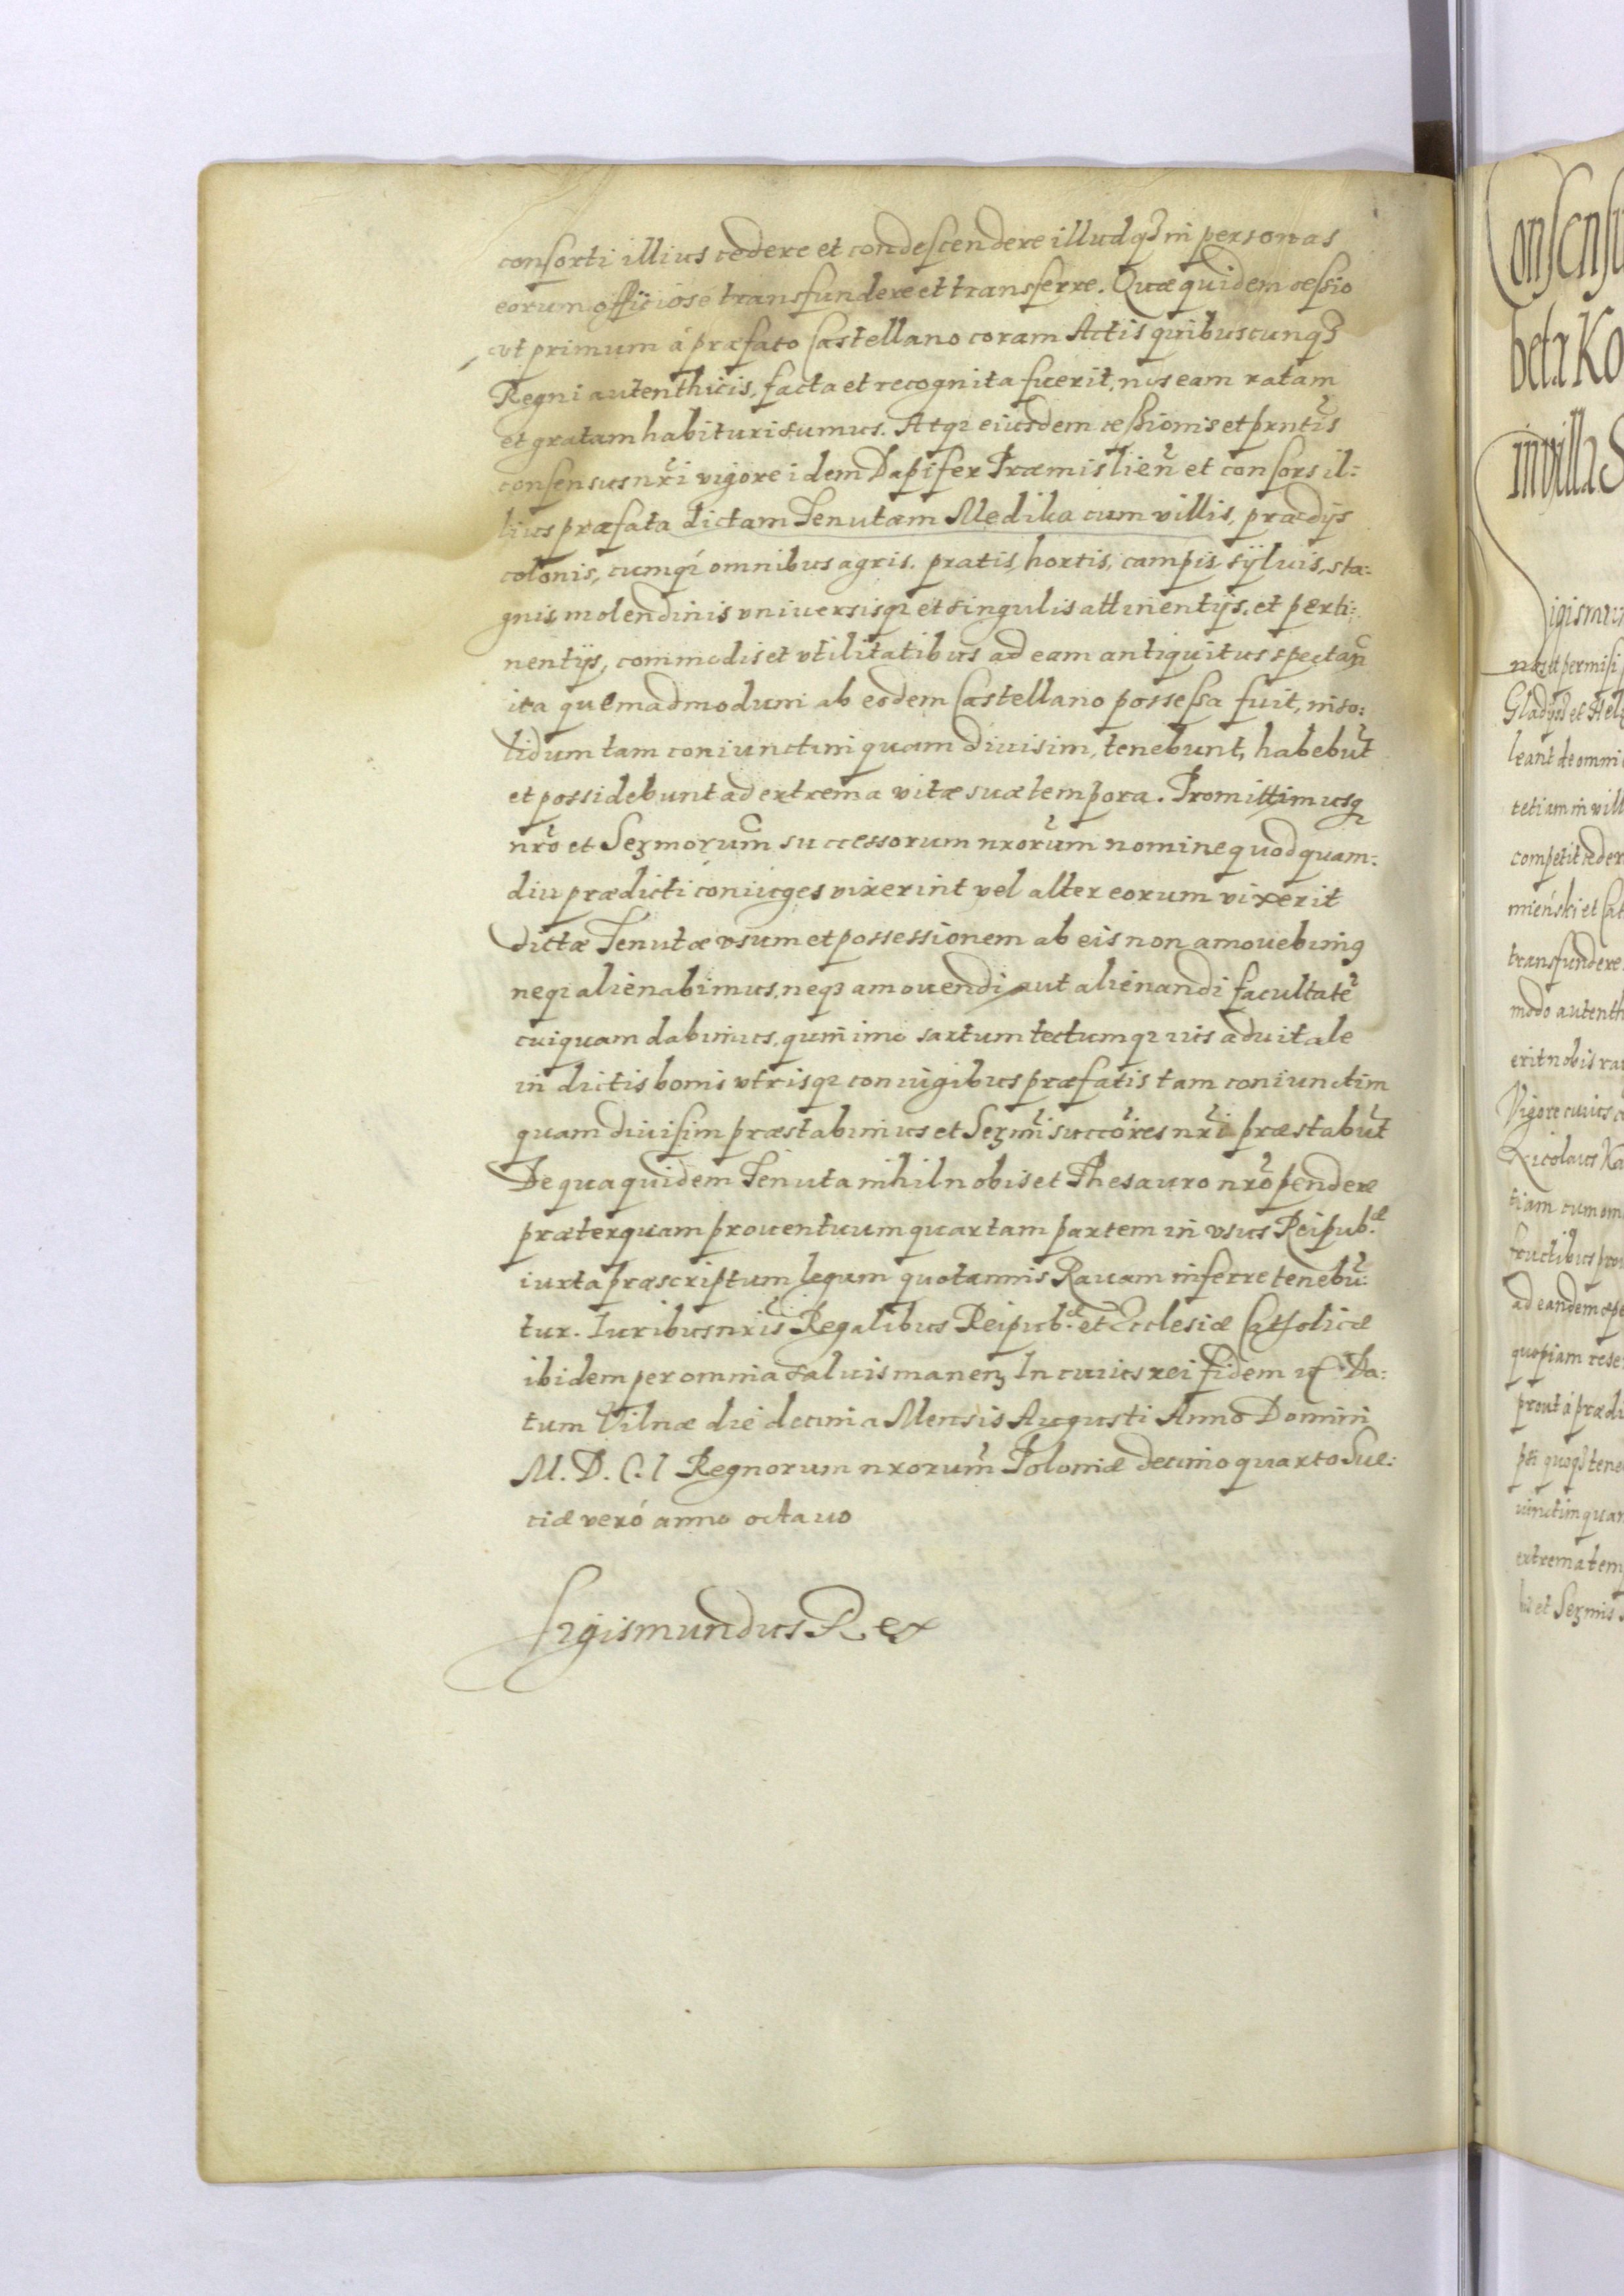 consorti illius cedere et condescendere illudq₃ in personas
eorum officiosé transfundere et transferre. Quæ quidem cessio
ut primum á præfato Castellano coram Actis quibuscunq₃
Regni autenthicis, facta et recognita fuerit, nos eam ratam
et gratam habituri sumus. Atq₃ eiusdem cessionis et pr̃ntis
consensus nr̃i vigore idem Dapifer Præmislien̄ et consors il:
lius præfata dictam Tenutam Medika cum villis, prædijs
colonis, cumq₃ omnibus agris. pratis, hortis, campis, sÿluis, sta:
gnis, molendinis vniuersisq₃ et singulis attinentijs, et perti:
nentijs, commodis et vtilitatibus ad eam antiquitus spectan̄
ita quemadmodum ab eodem Castellano possessa fuit, in so:
lidum tam coniunctim quam diuisim, tenebunt, habebūt
et possidebunt ad extrema vitæ suæ tempora. Promittimusq₃
nr̃o et Serm̃orum successorum nr̃orum nomine quod quam:
diu prædicti coniuges vixerint vel alter eorum vixerit
dictæ Tenutæ vsum et possessionem ab eis non amouebimus
neq₃ alienabimus, neq₃ amouendi aut alienandi facultatē
cuiquam dabimus, quin imo sartum tectumq₃ ius aduitale
in dictis bonis vtrisq₃ coniugibus præfatis tam coniunctim
quam diuisim præstabimus et Serm̃i succōres nr̃i præstabūt
De qua quidem Tenuta nihil nobis et Thesauro nr̃o pendere
præterquam prouentuum quartam partem in vsus Reipub.æ
iuxta præscriptum legum quotannis Rauam inferre tenebū:
tur. Iuribus nr̃is Regalibus Reipub.æ et Ecclesiæ Catholicæ
ibidem per omnia saluis manen₃ In cuius rei fidem etc. Da:
tum Vilnæ die decima Mensis Augusti Anno Domini
M. D. C. I Regnorum nr̃orum Poloniæ decimo quarto Sue:
ciæ veró anno octauo
Sigismundus Rex
onsensu
beta Ko
in villa S
igismun
nos et permisi
leant de omni
teti am in vill
competit ceder
mieński et Cat
transfundere
modo autenth
erit nobis rat
Vigore cuius
Nicolaus Ka
tiam cum om
fructibus prou
ad eandem
quopiam rese
prout á prædi
pti quoq₃ tene
uinctim quam
extrema temp
bis et Serm̃is